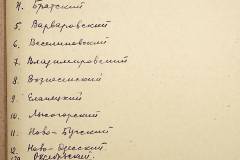 4. Братский
5. Варваровский
6. Веселиновский
7. Владимировский
8. Вознесенский
9. Еланецкий
10. Лысогорский
11. Ново-Бугский
12. Ново-Одесский
Октябрьский